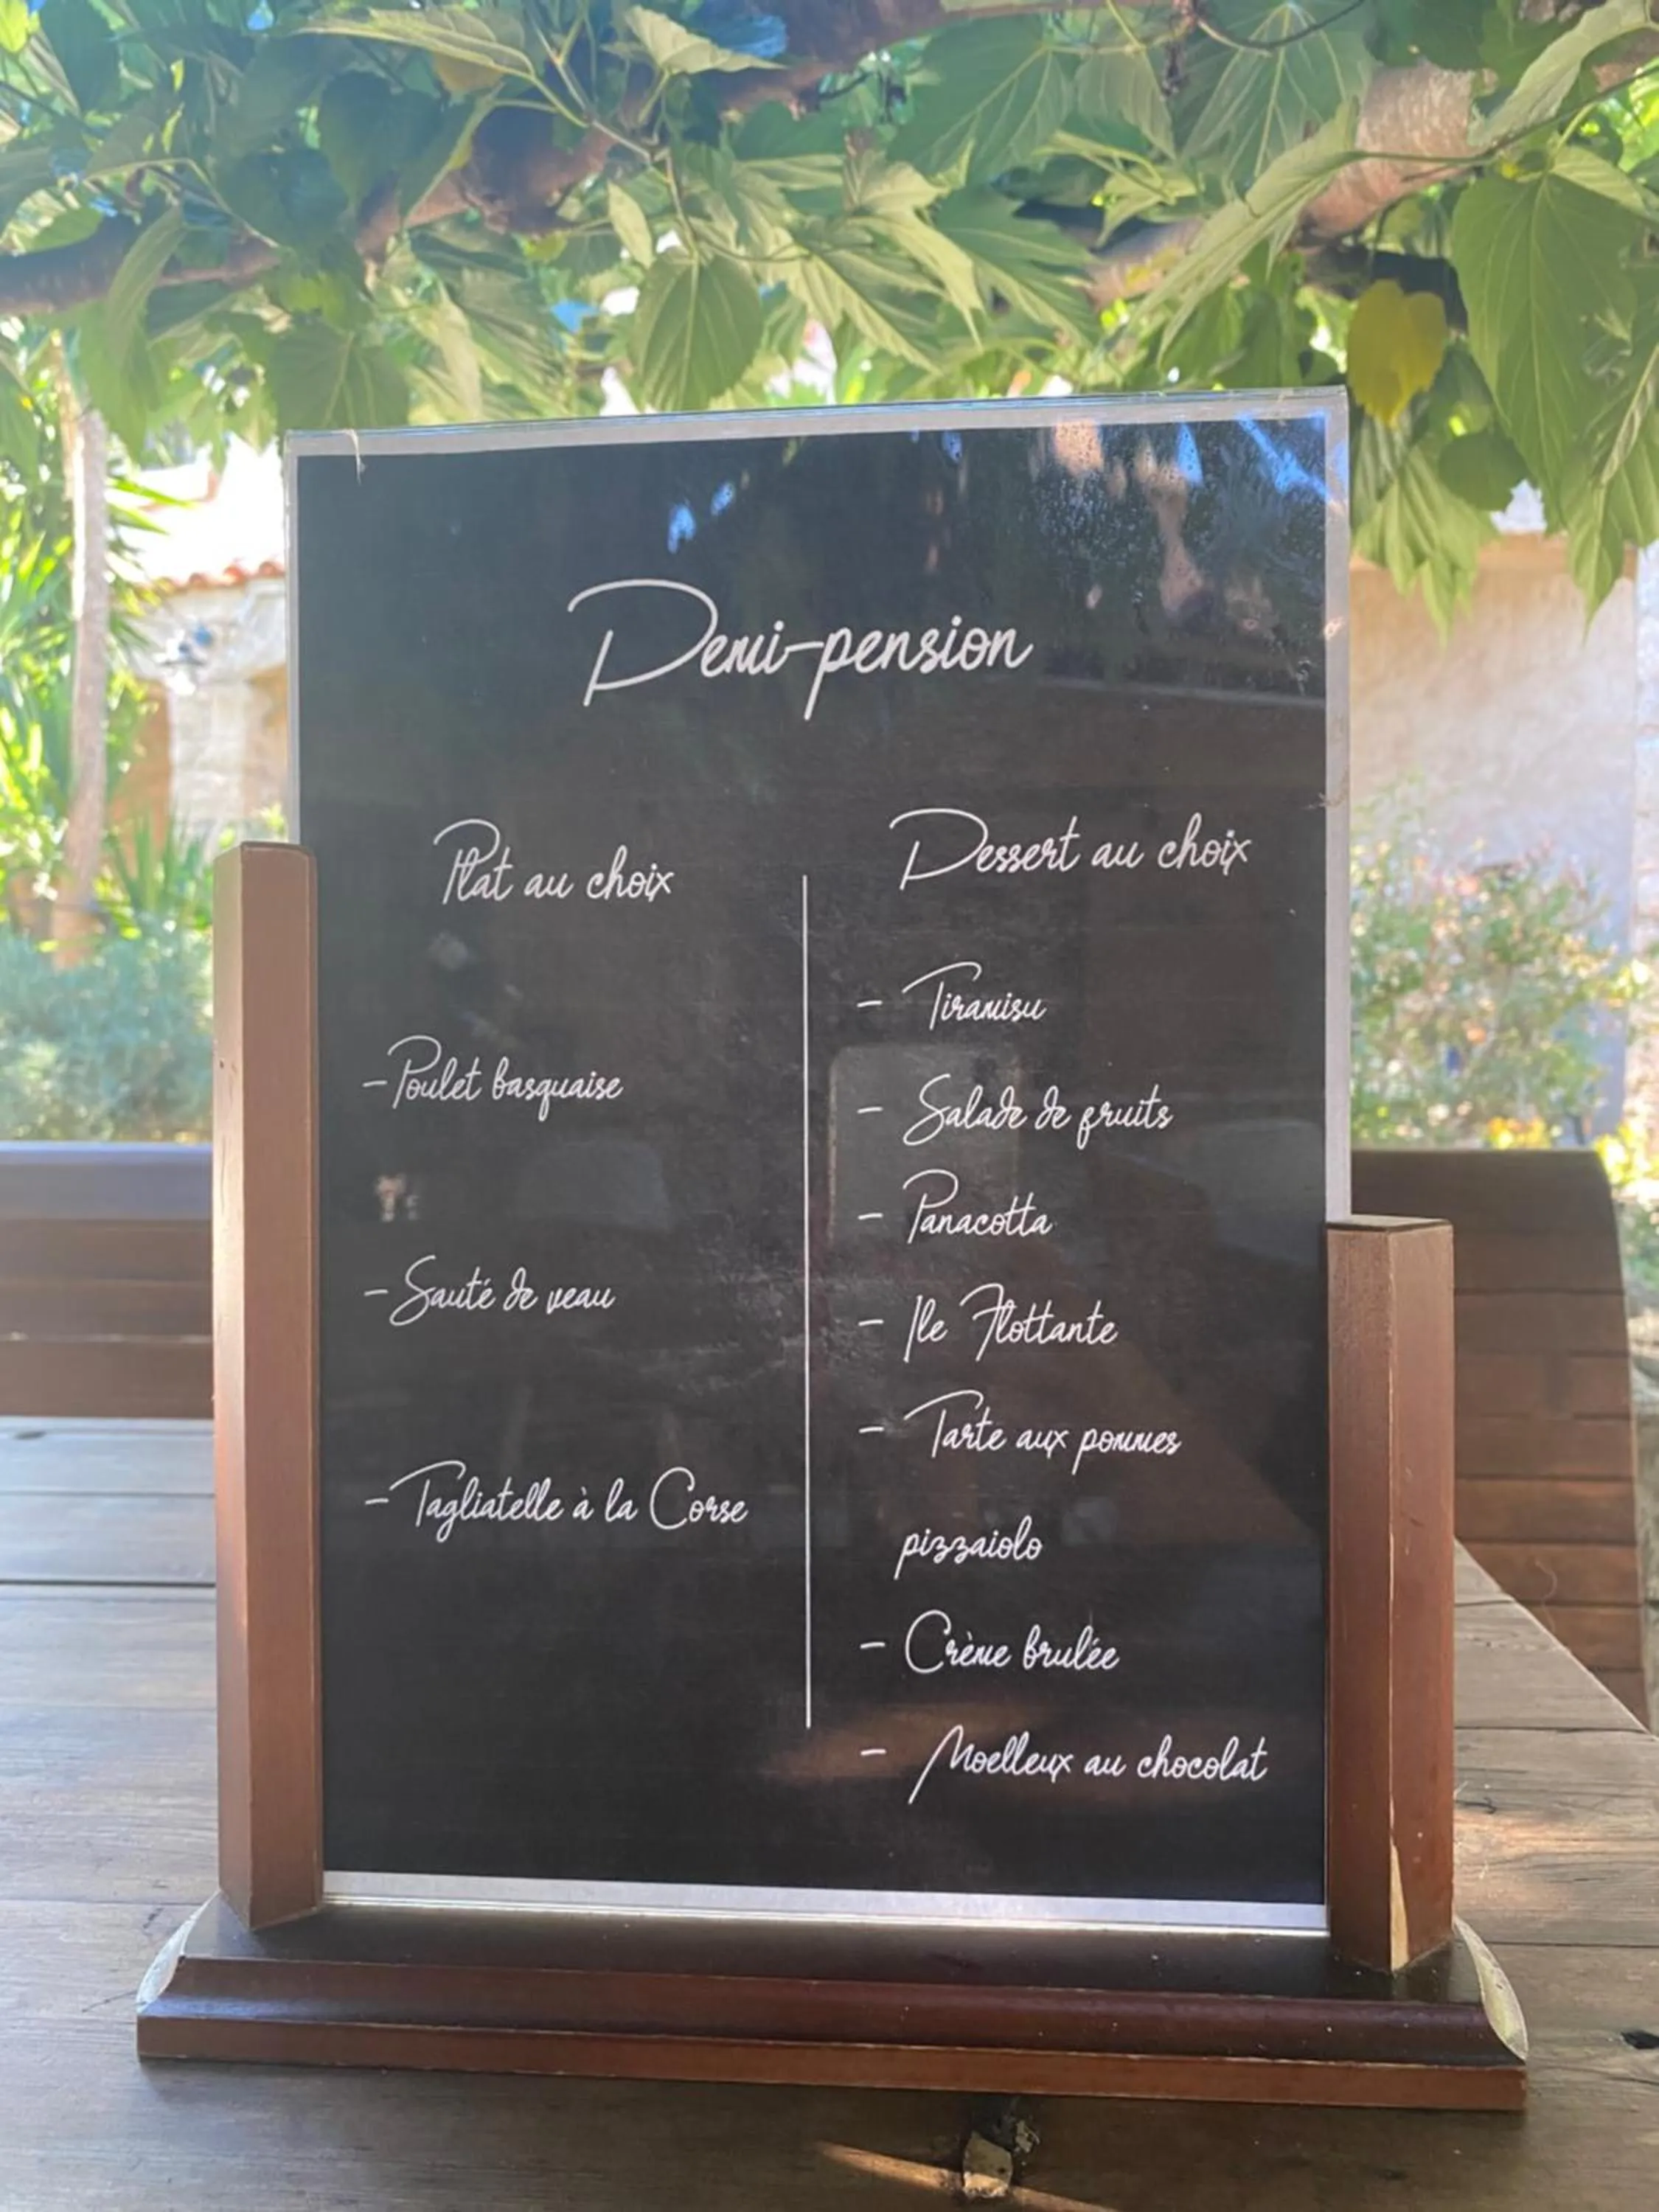 Demi-pension
Plat au choix
-Poulet basquaise
- Sauté de veau
- Tagliatelle à la Corse
Dessert au choix
- Tiramisu
- Salade de fruits
- Panacotta
- Ile Flottante
- Tarte aux pommes
pizzaiolo
- Crème brulée
- Moelleux au chocolat